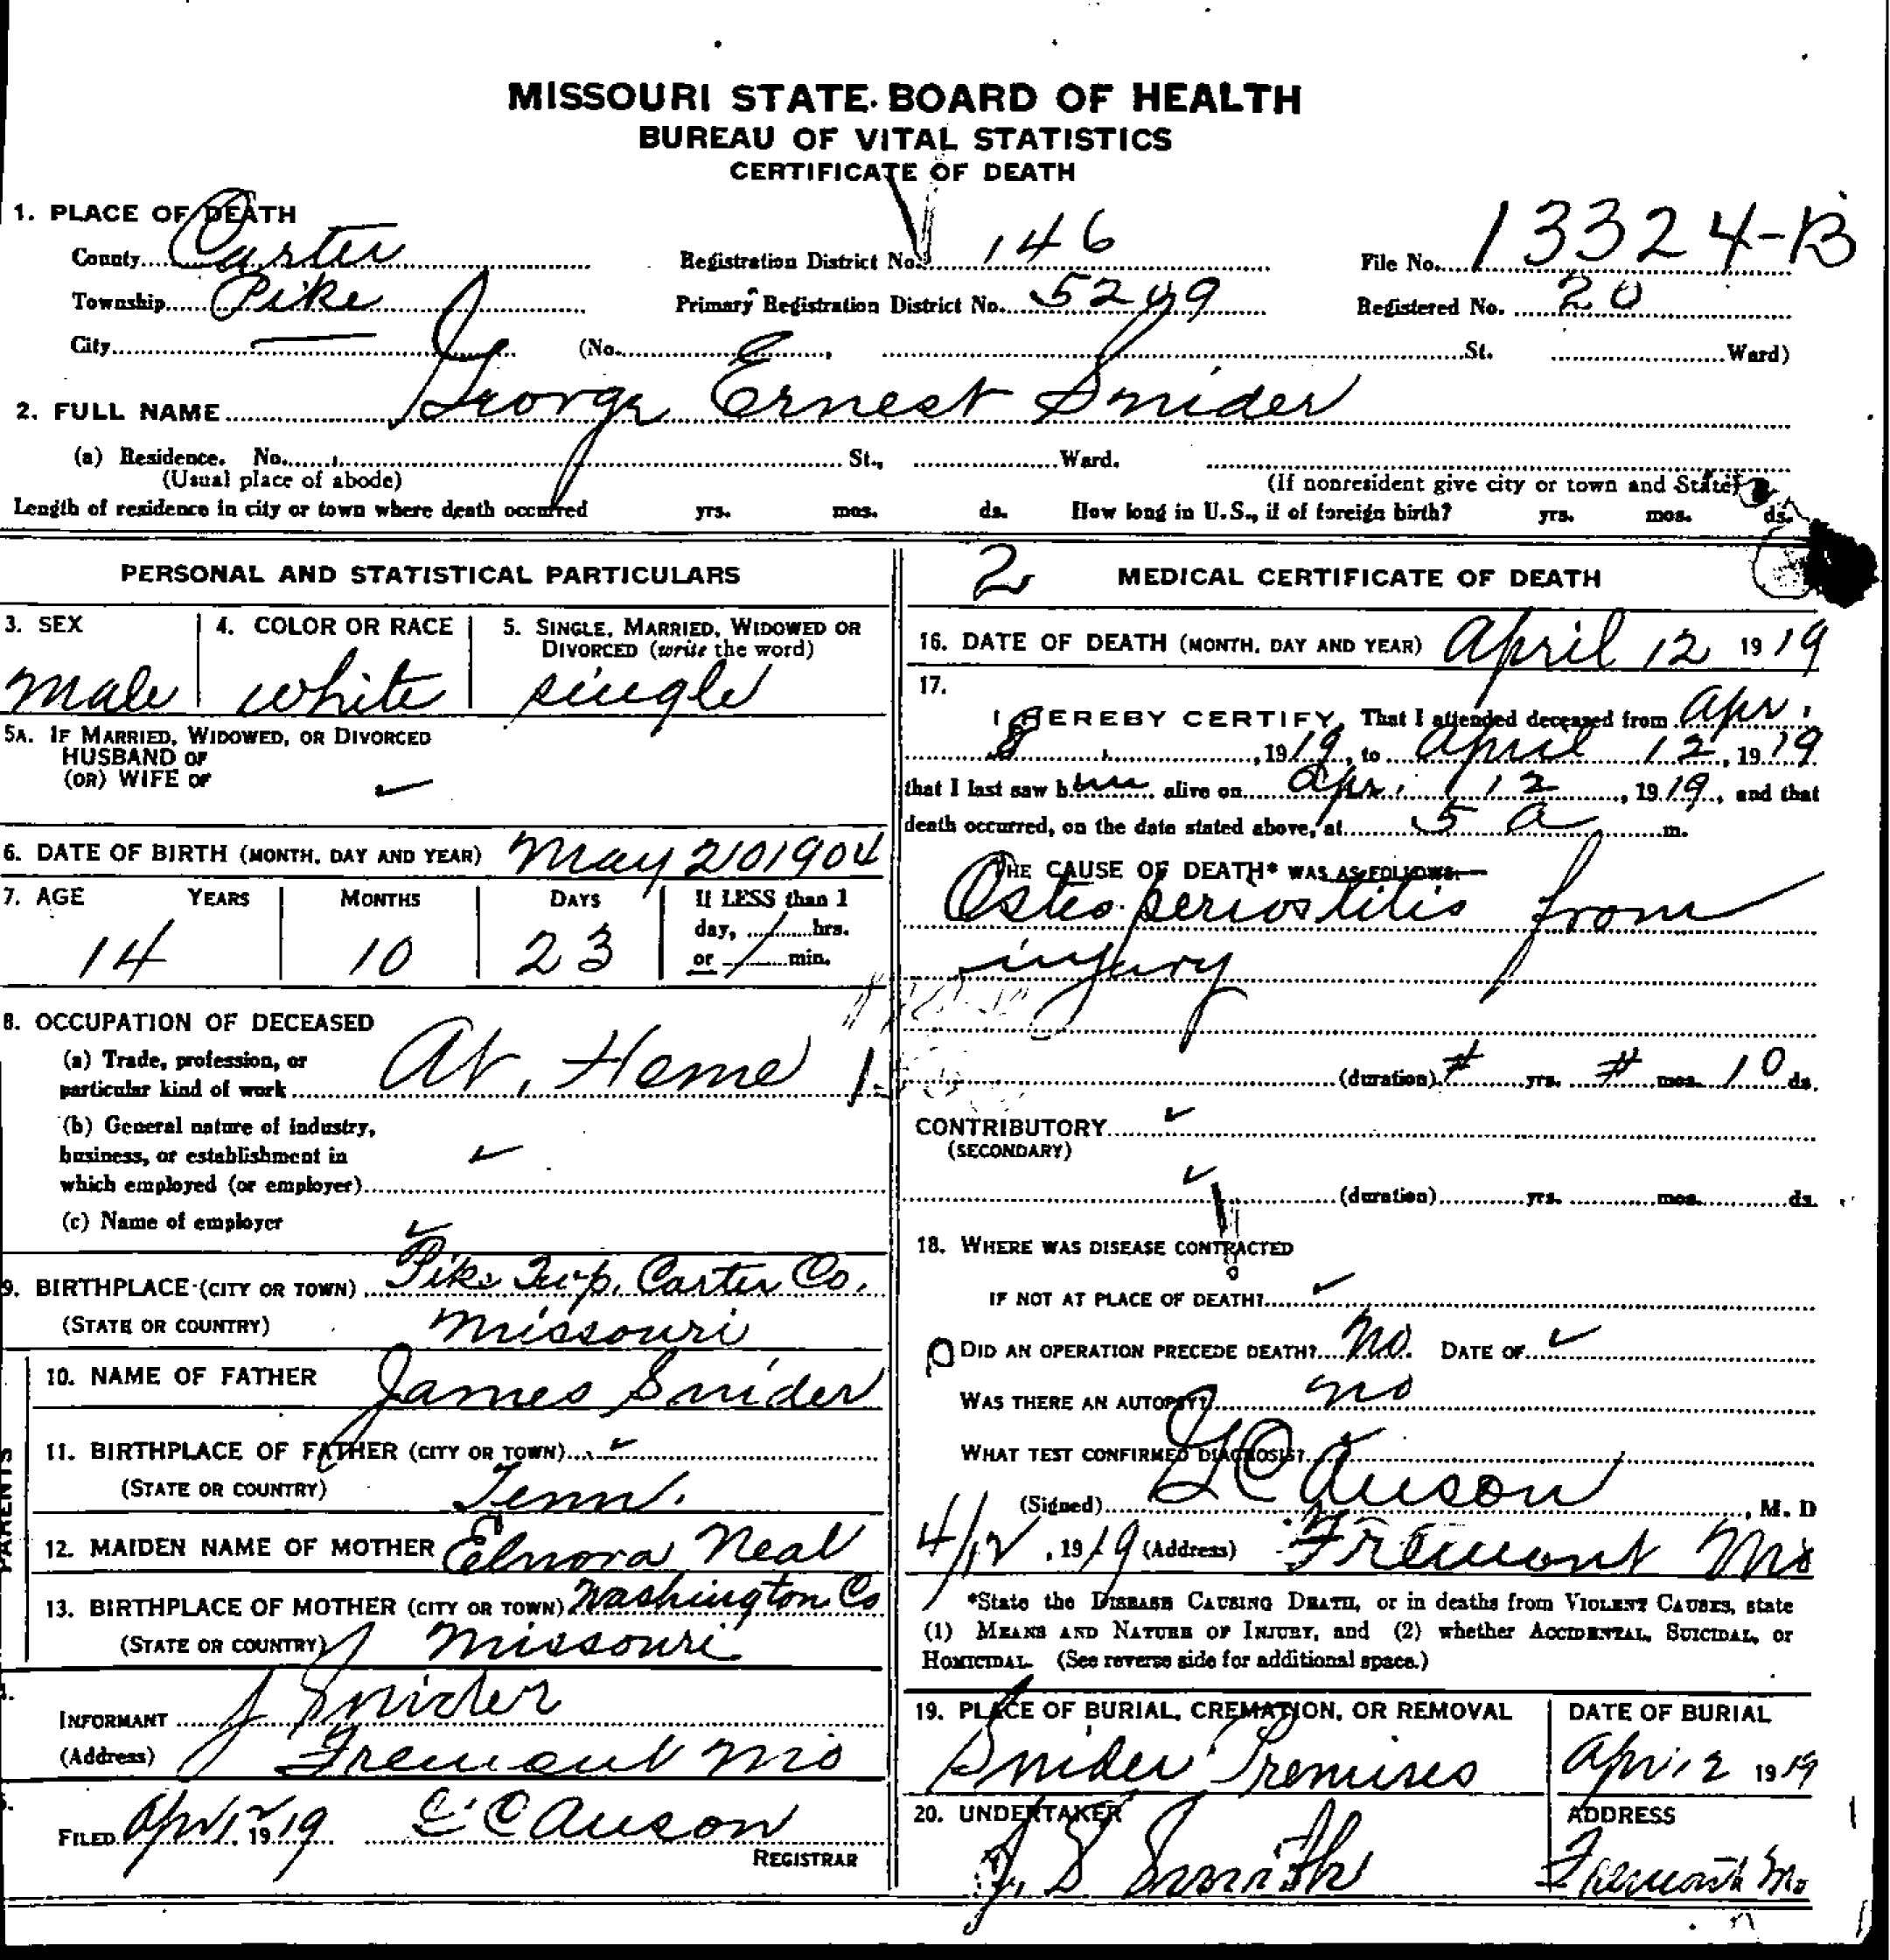 MISSOURI STATE BOARD OF HEALTH
BUREAU OF VITAL STATISTICS
CERTIFICATE OF DEATH
1. PLACE OF DEATH
County Carter Registration District No. 146 File No. 13324-B
Township Pike Primary Registration District No. 5209 Registered No. 20
City — (No. , St. Ward)
2. FULL NAME George Ernest Snider
(a) Residence. No. St., Ward.
(Usual place of abode) (If nonresident give city or town and State)
Length of residence in city or town where death occurred yrs. mos. ds. How long in U.S., if of foreign birth? yrs. mos. ds.
PERSONAL AND STATISTICAL PARTICULARS
3. SEX 4. COLOR OR RACE 5. SINGLE, MARRIED, WIDOWED OR
DIVORCED (write the word)
male white single
5A. IF MARRIED, WIDOWED, OR DIVORCED
HUSBAND OF
(OR) WIFE OF
6. DATE OF BIRTH (MONTH, DAY AND YEAR) May 20 1904
7. AGE YEARS MONTHS DAYS If LESS than 1
day, hrs.
14 10 23 or min.
8. OCCUPATION OF DECEASED
(a) Trade, profession, or
particular kind of work At Home
(b) General nature of industry,
business, or establishment in
which employed (or employer)
(c) Name of employer
9. BIRTHPLACE (CITY OR TOWN) Pike Twp. Carter Co.
(STATE OR COUNTRY) Missouri
PARENTS
10. NAME OF FATHER James Snider
11. BIRTHPLACE OF FATHER (CITY OR TOWN)
(STATE OR COUNTRY) Tenn.
12. MAIDEN NAME OF MOTHER Elnora Neal
13. BIRTHPLACE OF MOTHER (CITY OR TOWN) Washington Co
(STATE OR COUNTRY) Missouri
INFORMANT J Snider
(Address) Fremont Mo
FILED Apr 12 1919 CC Auson
REGISTRAR
2 MEDICAL CERTIFICATE OF DEATH
16. DATE OF DEATH (MONTH, DAY AND YEAR) April 12 1919
17.
I HEREBY CERTIFY, That I attended deceased from Apr.
8, 1919, to April 12, 1919
that I last saw him alive on Apr. 12, 1919, and that
death occurred, on the date stated above, at 5 a m.
THE CAUSE OF DEATH* WAS AS FOLLOWS:
Osteoperiostitis from
injury
(duration) # yrs. # mos. 10 ds.
CONTRIBUTORY
(SECONDARY)
(duration) yrs. mos. ds.
18. WHERE WAS DISEASE CONTRACTED
IF NOT AT PLACE OF DEATH?
DID AN OPERATION PRECEDE DEATH? No. DATE OF
WAS THERE AN AUTOPSY? no
WHAT TEST CONFIRMED DIAGNOSIS?
(Signed) Auson, M. D
4/12, 1919 (Address) Fremont Mo
*State the DISEASE CAUSING DEATH, or in deaths from VIOLENT CAUSES, state
(1) MEANS AND NATURE OF INJURY, and (2) whether ACCIDENTAL, SUICIDAL, or
HOMICIDAL. (See reverse side for additional space.)
19. PLACE OF BURIAL, CREMATION, OR REMOVAL DATE OF BURIAL
Snider Premises Apr 12 1919
20. UNDERTAKER ADDRESS
J. S Smith Fremont Mo